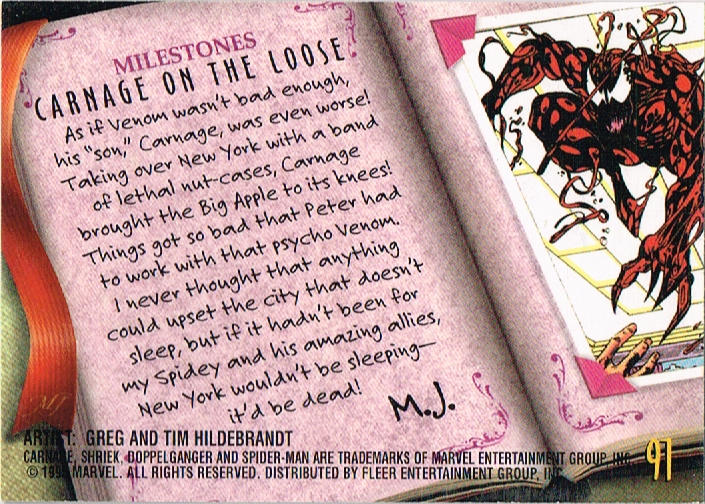 MILESTONES
CARNAGE ON THE LOOSE
As if Venom wasn't bad enough,
his "son," Carnage, was even worse!
Taking over New York with a band
of lethal nut-cases, Carnage
brought the Big Apple to its knees!
Things got so bad that Peter had
to work with that psycho Venom.
I never thought that anything
could upset the city that doesn't
sleep, but if it hadn't been for
my Spidey and his amazing allies,
New York wouldn't be sleeping—
it'd be dead!
M.J.
ARTIST: GREG AND TIM HILDEBRANDT
CARNAGE, SHRIEK, DOPPELGANGER AND SPIDER-MAN ARE TRADEMARKS OF MARVEL ENTERTAINMENT GROUP, INC.
© MARVEL. ALL RIGHTS RESERVED. DISTRIBUTED BY FLEER ENTERTAINMENT GROUP, INC.
97